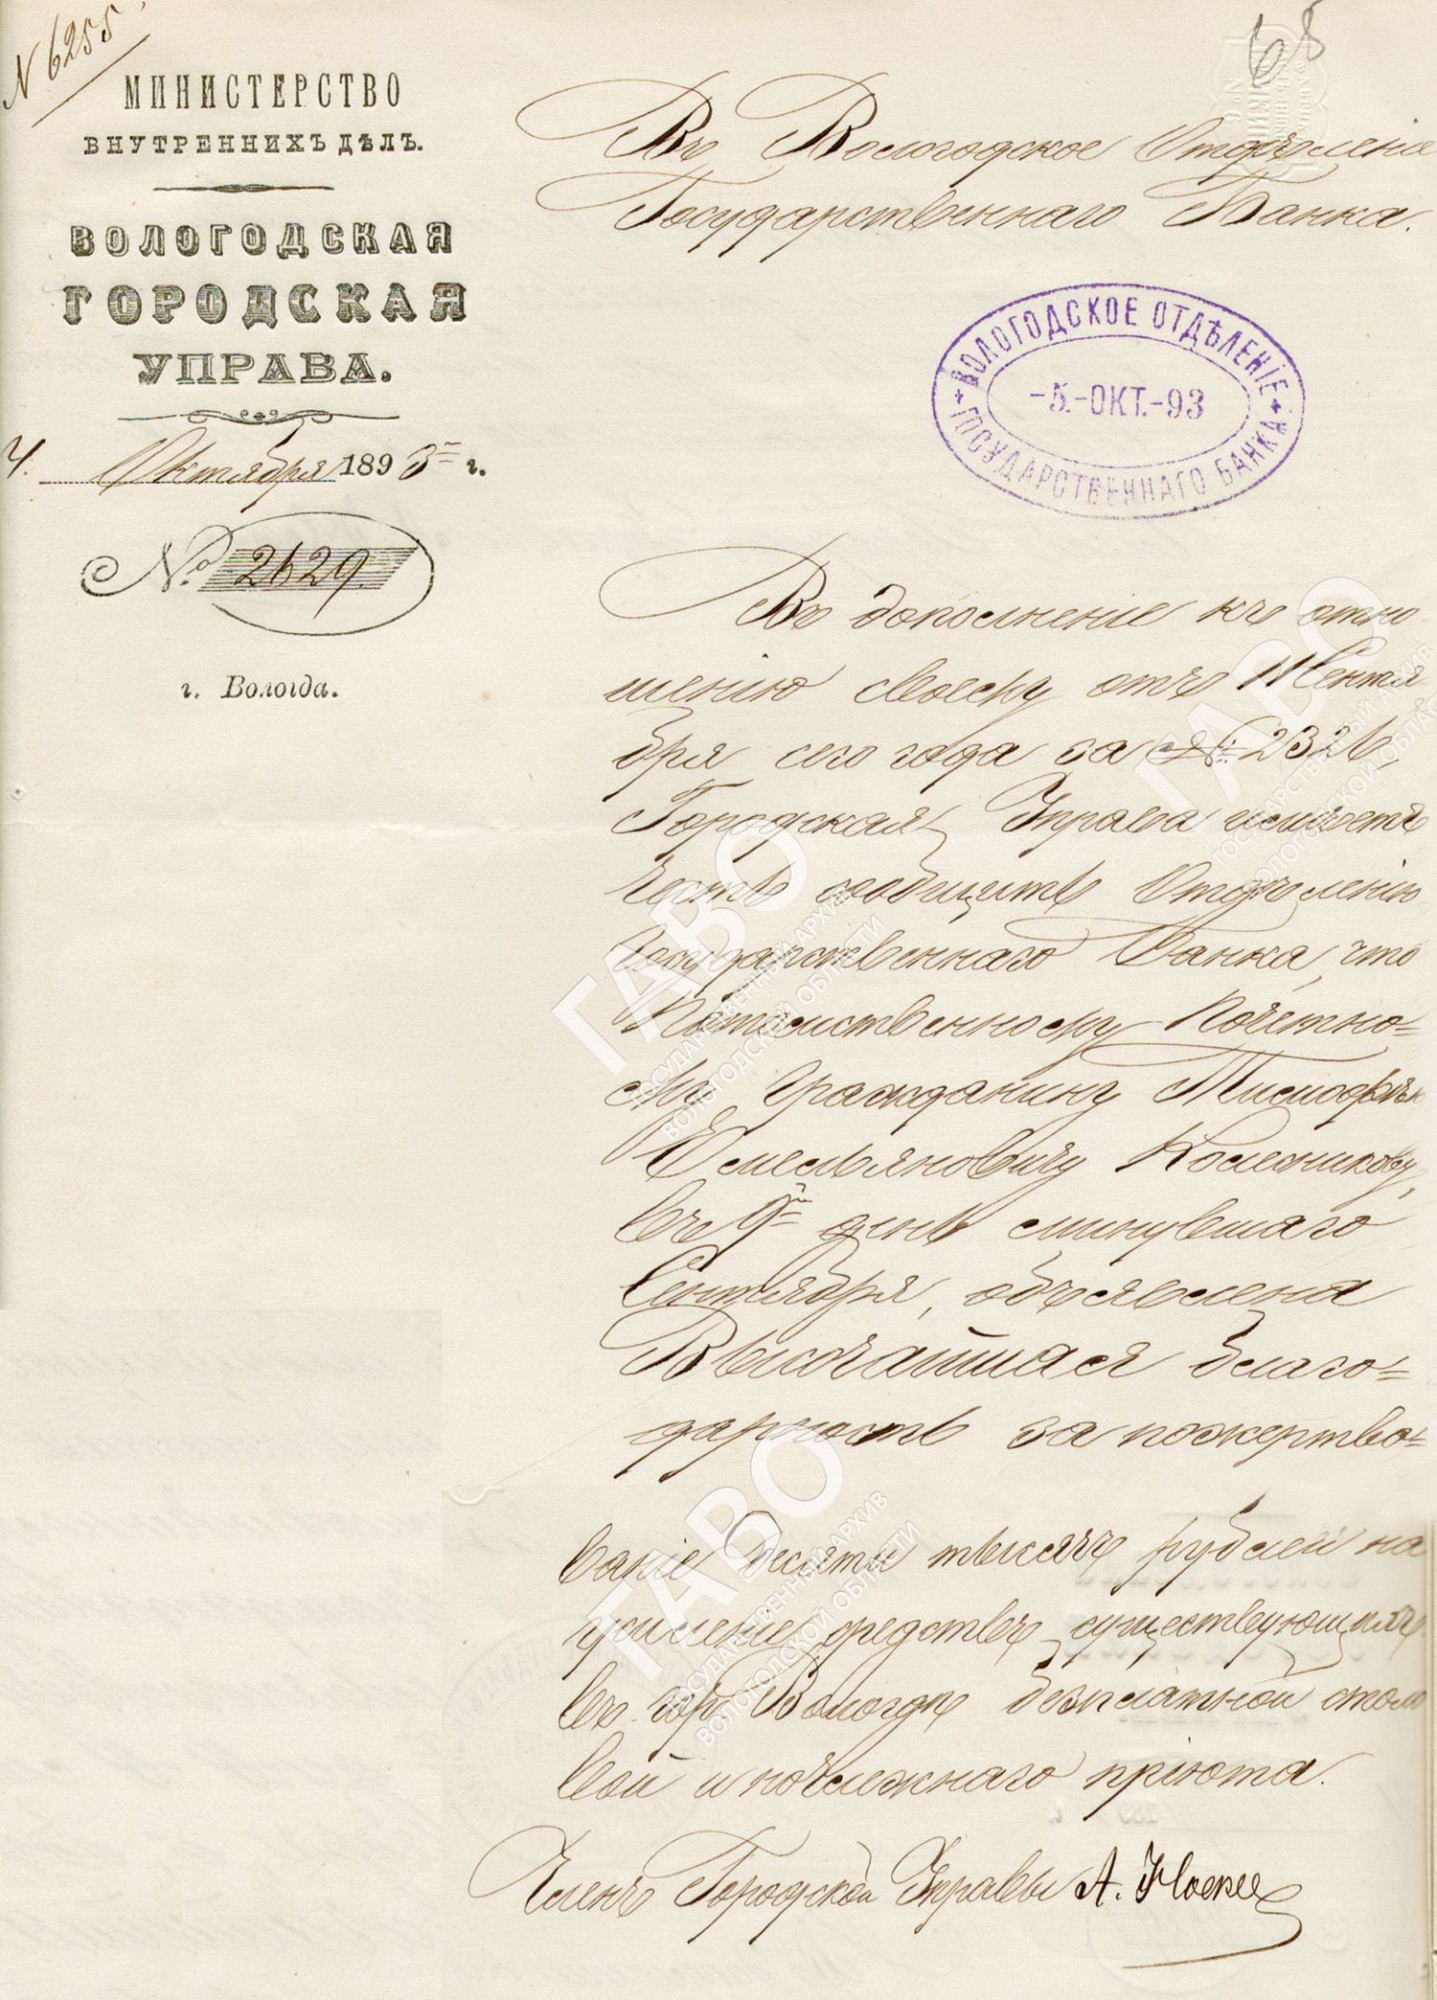 N 6255.
68
МИНИСТЕРСТВО
ВНУТРЕННИХЪ ДѢЛЪ.
ВОЛОГОДСКАЯ
ГОРОДСКАЯ
УПРАВА.
4. Октября 1893 г.
№ 2629.
г. Вологда.
Въ Вологодское Отдѣленіе
Государственнаго Банка.
ВОЛОГОДСКОЕ ОТДѢЛЕНІЕ
-5.-ОКТ.-93
ГОСУДАРСТВЕННАГО БАНКА
Въ дополненіе къ отно
шенію своему отъ 11 Сентя
бря сего года за № 2326,
Городская Управа имѣетъ
честь сообщить Отдѣленію
Государственнаго Банка, что
Потомственному Почетно=
му Гражданину
Емельяновичу Колесникову,
въ 9й день минувшаго
Сентября, объявлена
Высочайшая благо=
дарность за пожертво=
ваніе десяти тысячъ рублей на
усиленіе средствъ существующихъ
въ гор. Вологдѣ безплатной столо
вой и ночлежнаго пріюта.
Членъ Городской Управы А.
ГАВО
ГОСУДАРСТВЕННЫЙ АРХИВ
ВОЛОГОДСКОЙ ОБЛАСТИ
ГАВО
ГОСУДАРСТВЕННЫЙ АРХИВ
ВОЛОГОДСКОЙ ОБЛАСТИ
ГАВО
ГОСУДАРСТВЕННЫЙ АРХИВ
ВОЛОГОДСКОЙ ОБЛАСТИ